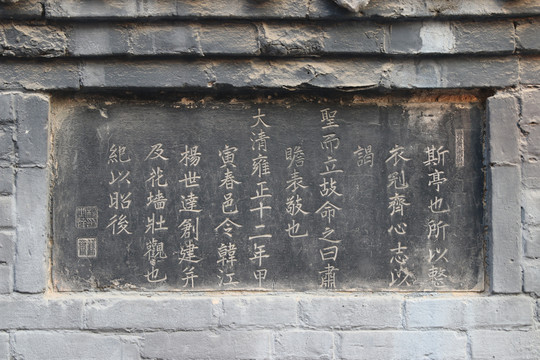 斯亭也所以整
衣别齊心志以
謁
聖而立故命之曰肅
瞻表敬也
大清雍正十二年甲
寅春邑令韓江
楊世達創建并
及花墻壯觀也
紀以昭後